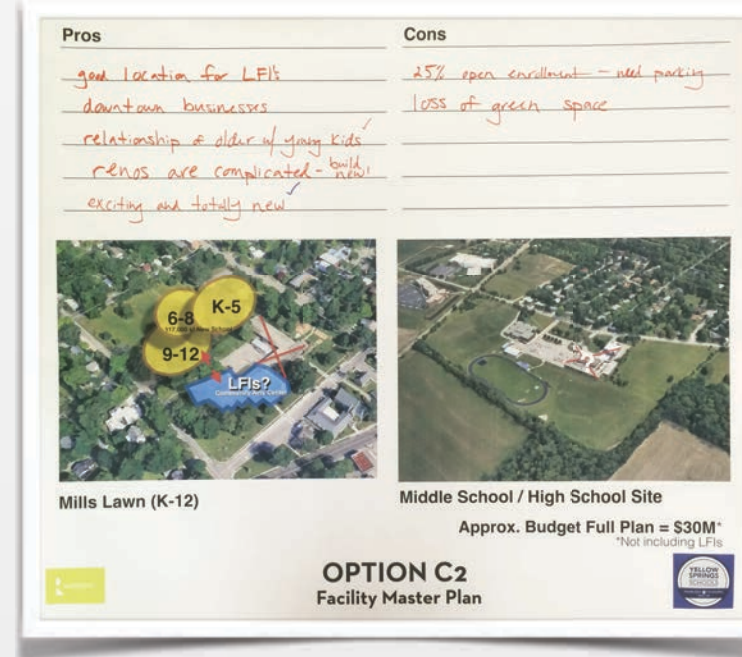 Pros
good location for LFI's
downtown businesses
relationship of older w/ young kids
renos are complicated - build new!
exciting and totally new
Cons
25% open enrollment - need parking
loss of green space
6-8
K-5
117,000 sf New School
9-12
LFIs?
Community Arts Center
Mills Lawn (K-12)
Middle School / High School Site
Approx. Budget Full Plan = $30M*
*Not including LFIs
OPTION C2
Facility Master Plan
YELLOW
SPRINGS
SCHOOLS